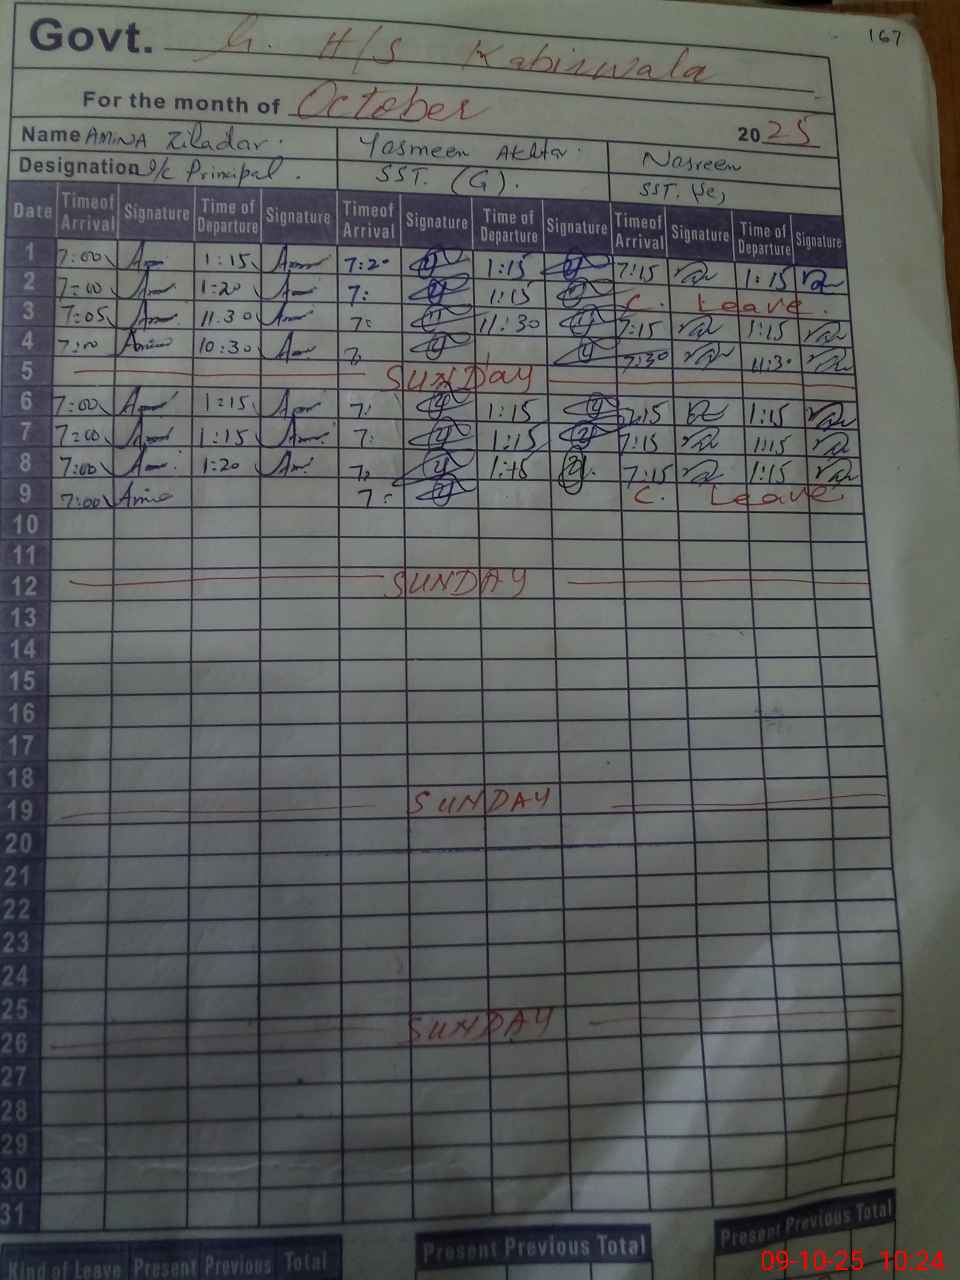 167
Govt. G. H/S Kabirwala
For the month of October
2025
Name AMINA Ziladar. Yasmeen Akhtar. Nasreen
Designation I/C Principal. SST. (G). SST. (Sc)
Date Timeof Arrival Signature Time of Departure Signature Timeof Arrival Signature Time of Departure Signature Timeof Arrival Signature Time of Departure Signature
1 7:00 1:15 7:20 1:15 7:15 1:15
2 7:00 1:20 7: 1:15 C. Leave.
3 7:05 11.30 7: 11:30 7:15 1:15
4 7:00 10:30 7: 7:30 11:30
5 SUNDAY
6 7:00 1:15 7: 1:15 7:15 1:15
7 7:00 1:15 7: 1:15 7:15 1:15
8 7:00 1:20 7: 1:15 7:15 1:15
9 7:00 7: C. Leave
10
11
12 SUNDAY
13
14
15
16
17
18
19 SUNDAY
20
21
22
23
24
25
26 SUNDAY
27
28
29
30
31
Kind of Leave Present Previous Total Present Previous Total Present Previous Total
09-10-25 10:24